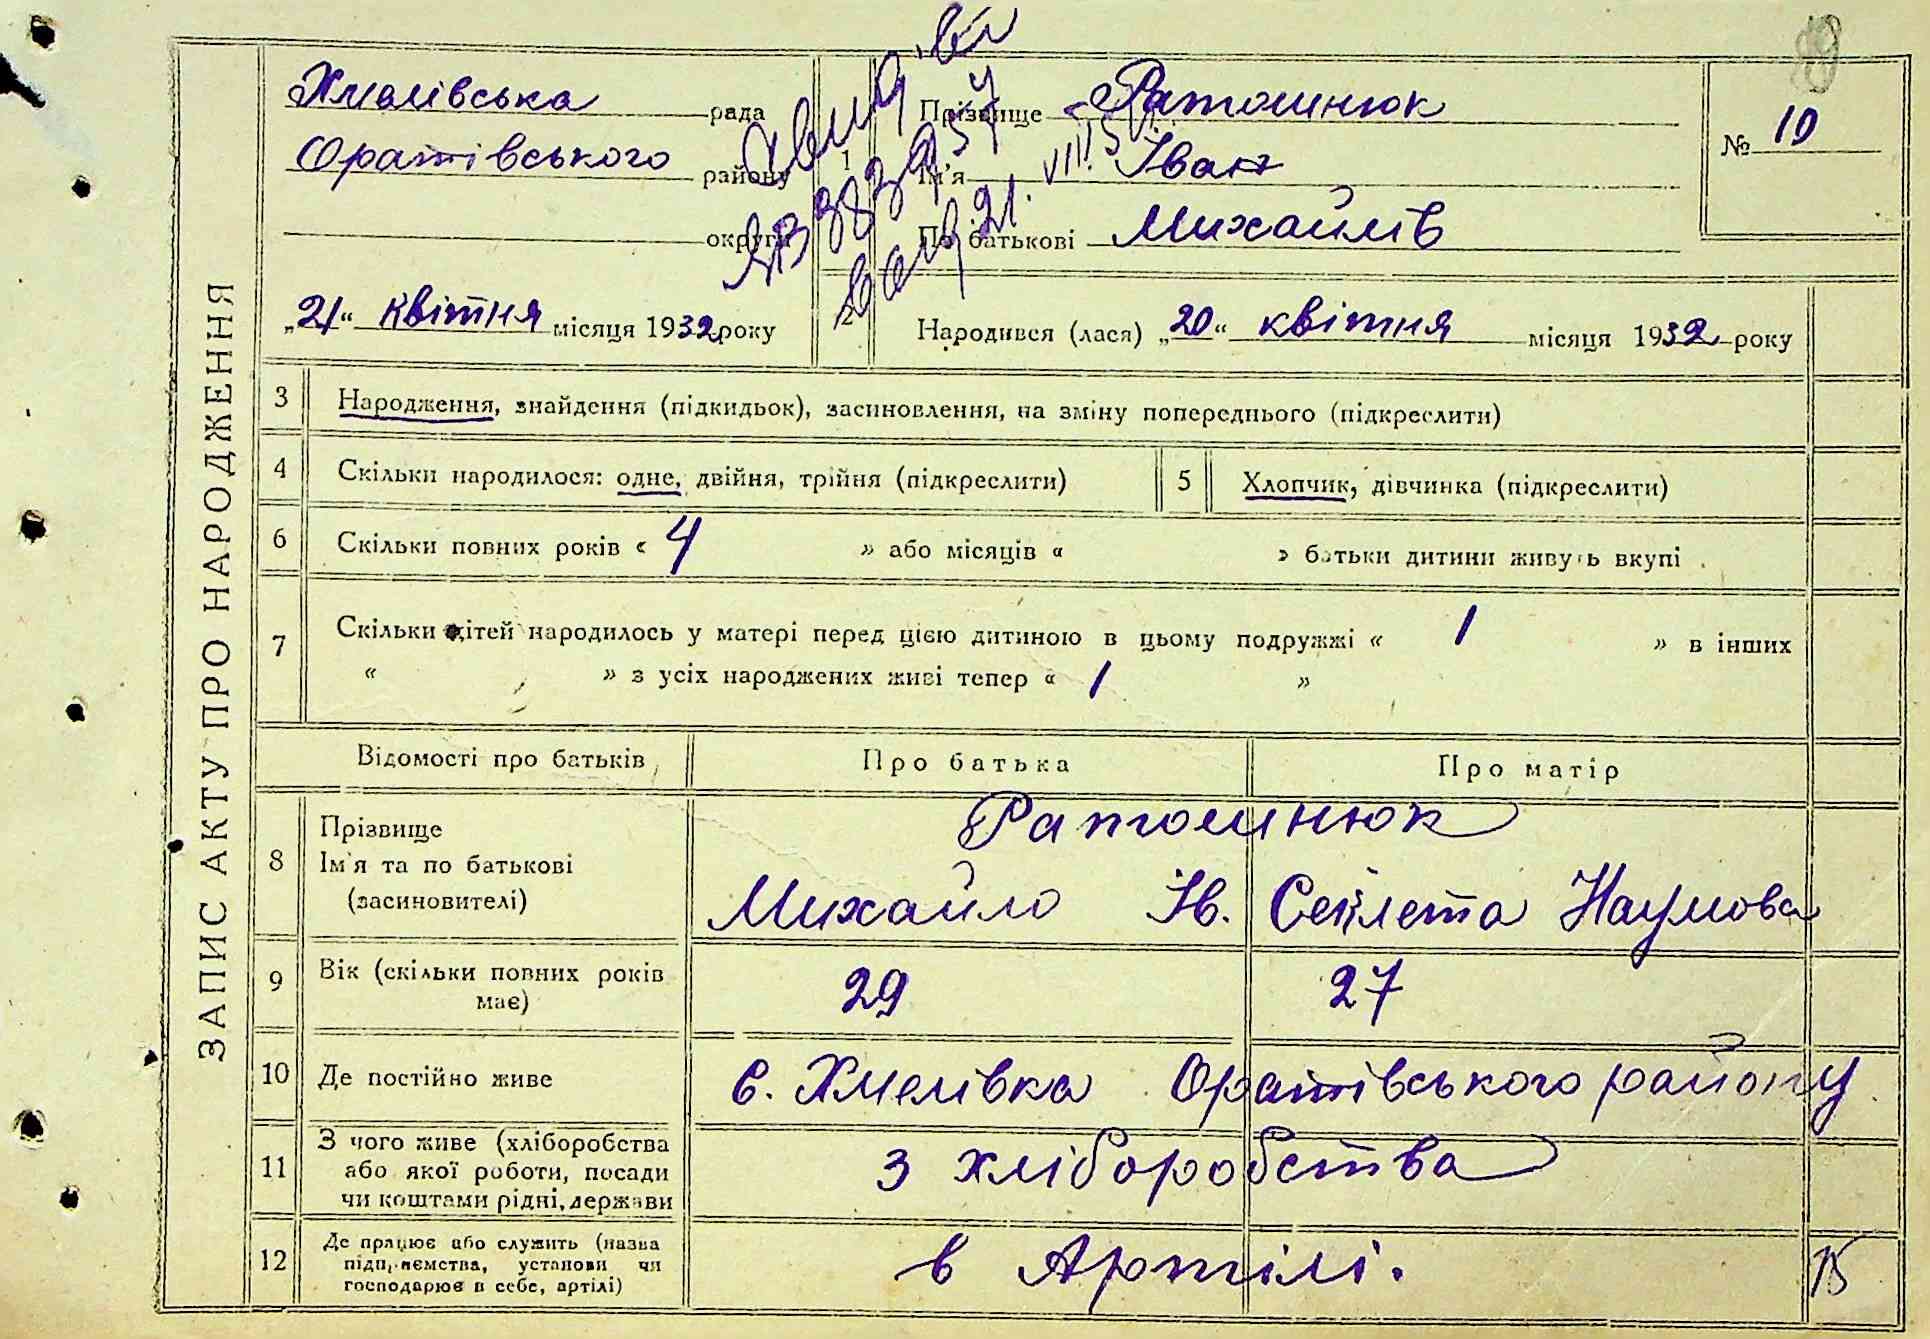 89
ЗАПИС АКТУ ПРО НАРОДЖЕННЯ
Хмелівська рада
Оратівського району
округи
„21“ квітня місяця 1932 року
1
Прізвище Ратошнюк
Ім'я Іван
По батькові Михайлів
№ 10
2
Народився (лася) „20“ квітня місяця 1932 року
3 Народження, знайдення (підкидьок), засиновлення, на зміну попереднього (підкреслити)
4 Скільки народилося: одне, двійня, трійня (підкреслити) 5 Хлопчик, дівчинка (підкреслити)
6 Скільки повних років « 4 » або місяців « » батьки дитини живуть вкупі
7 Скільки дітей народилось у матері перед цією дитиною в цьому подружжі « 1 » в інших
« » з усіх народжених живі тепер « 1 »
Відомості про батьків Про батька Про матір
8 Прізвище
Ім'я та по батькові
(засиновителі)
Ратошинюк
Михайло Ів. Секлета Наумова
9 Вік (скільки повних років
має)
29 27
10 Де постійно живе с. Хмелівка Оратівського району
11 З чого живе (хліборобства
або якої роботи, посади
чи коштами рідні, держави
з хліборобства
12 Де працює або служить (назва
підприємства, установи чи
господарює в себе, артілі)
в Артілі.